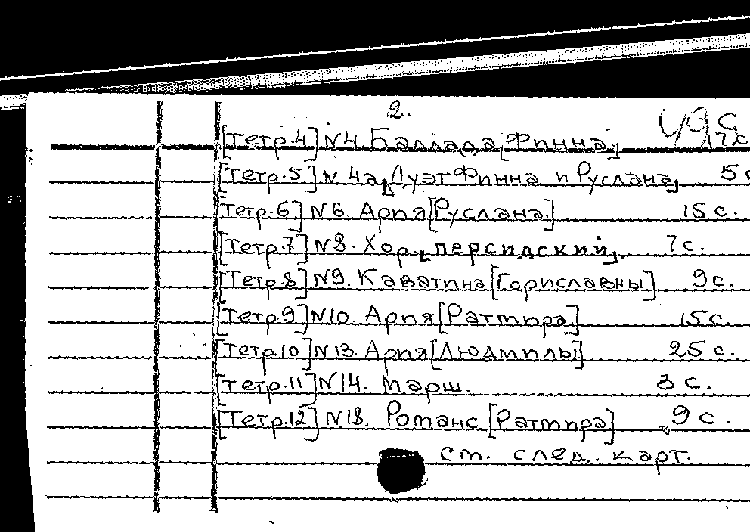 2.
49 с
[Тетр.4] №4. Баллада [Финна] 17с
[Тетр.5] №4а [Дуэт Финна и Руслана] 5с
[Тетр.6] №6. Ария [Руслана] 15с.
[Тетр.7] №8. Хор [персидский]. 7с.
[Тетр.8] №9. Каватина [Гориславны] 9с.
[Тетр.9] №10. Ария [Ратмира] 15с.
[Тетр.10] №13. Ария [Людмилы] 25с.
[Тетр.11] №14. Марш. 3с.
[Тетр.12] №18. Романс [Ратмира] 9с.
см. след. карт.